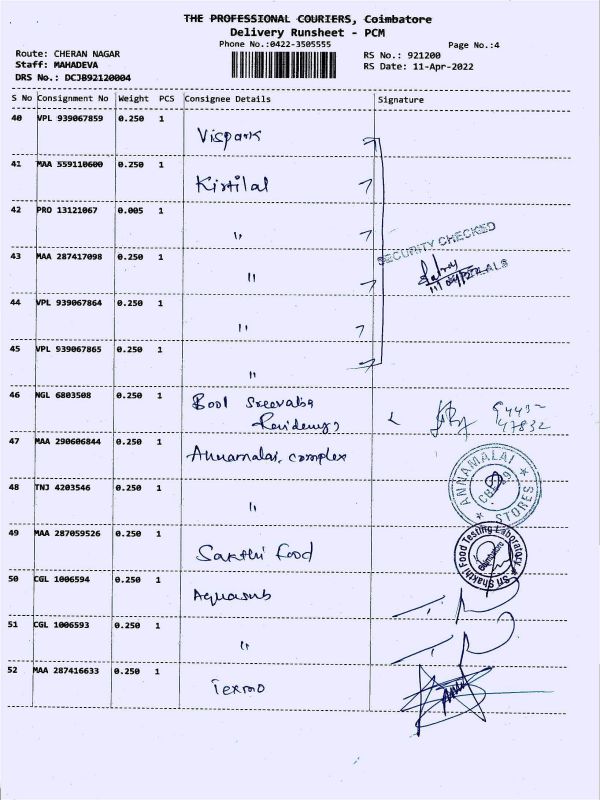 THE PROFESSIONAL COURIERS, Coimbatore
Delivery Runsheet - PCM
Phone No.:0422-3505555
Page No.:4
Route: CHERAN NAGAR
Staff: MAHADEVA
DRS No.: DCJB92120004
RS No.: 921200
RS Date: 11-Apr-2022
S No Consignment No Weight PCS Consignee Details Signature
40 VPL 939067859 0.250 1
Vispark
41 MAA 559110600 0.250 1
Kirtilal
42 PRO 13121067 0.005 1
"
SECURITY CHECKED
43 MAA 287417098 0.250 1
"
44 VPL 939067864 0.250 1
"
45 VPL 939067865 0.250 1
"
46 NGL 6803508 0.250 1
Sreevatsa
Residency
94432
47832
47 MAA 290606844 0.250 1
Annamalai complex
ANNAMALAI STORES
48 TNJ 4203546 0.250 1
"
49 MAA 287059526 0.250 1
Sakthi Food
Sri Shakthi Food Testing Laboratory
Coimbatore
50 CGL 1006594 0.250 1
Aquasub
51 CGL 1006593 0.250 1
"
52 MAA 287416633 0.250 1
Texmo